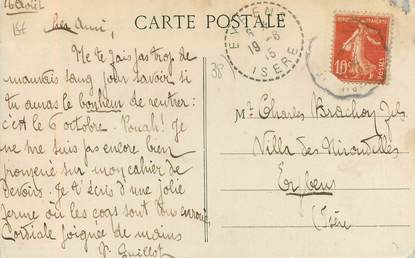 16 Août
CARTE POSTALE
Cher Ami,
Ne te fais pas trop de
mauvais sang pour savoir si
tu auras le bonheur de rentrer:
c'est le 6 octobre. Pouah! Je
ne me suis pas encore bien
promené sur mon cahier de
devoirs. Je t'écris d'une jolie
ferme où les coqs sont tous
Cordiale poignée de mains
P. Guillot
EYBENS
19-8
15
ISÈRE
38
10
POSTES
M. Charles Brachoy fils
Villa des Hirondelles
Eybens
Isère